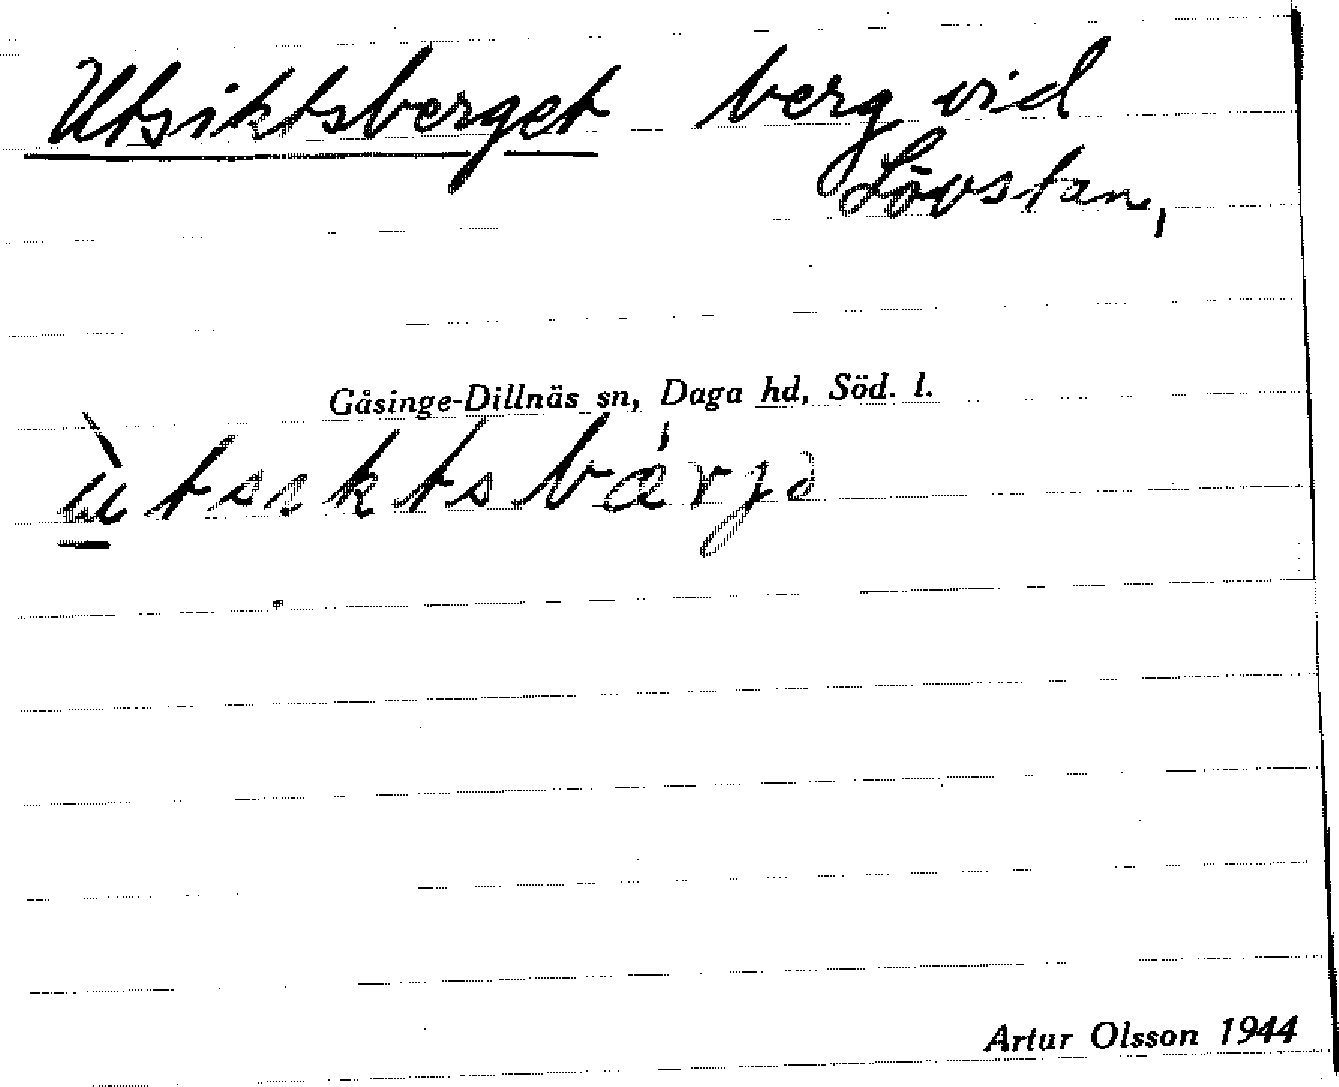 Utsiktsberget berg vid
Lövstan,
Gåsinge-Dillnäs sn, Daga hd, Söd. l.
ù̱tsıktsbá̈rjə
Artur Olsson 1944